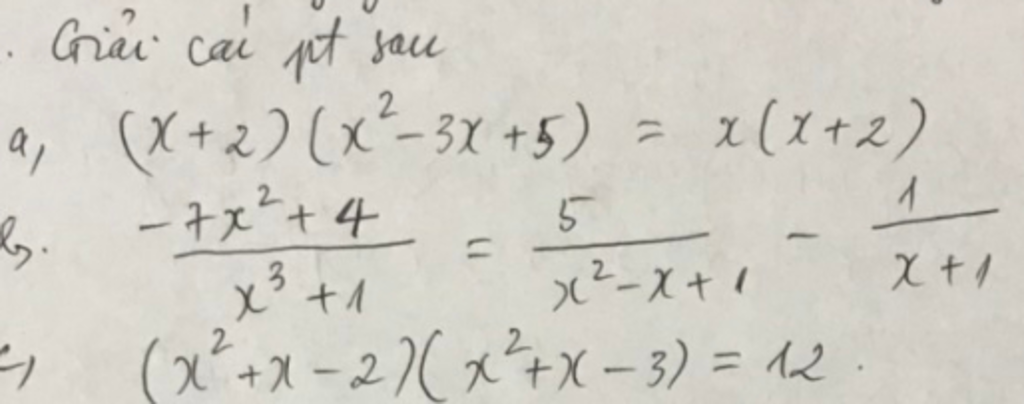 . Giải cái pt sau
a, (x+2)(x²-3x+5) = x(x+2)
b. (-7x²+4)/(x³+1) = 5/(x²-x+1) - 1/(x+1)
c, (x²+x-2)(x²+x-3) = 12.